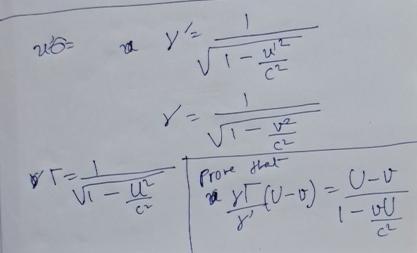 γ' = 1 / √(1 − u'² / c²)
γ = 1 / √(1 − v² / c²)
Γ = 1 / √(1 − U² / c²)
Prove that
γΓ / γ' (U − v) = (U − v) / (1 − vU / c²)